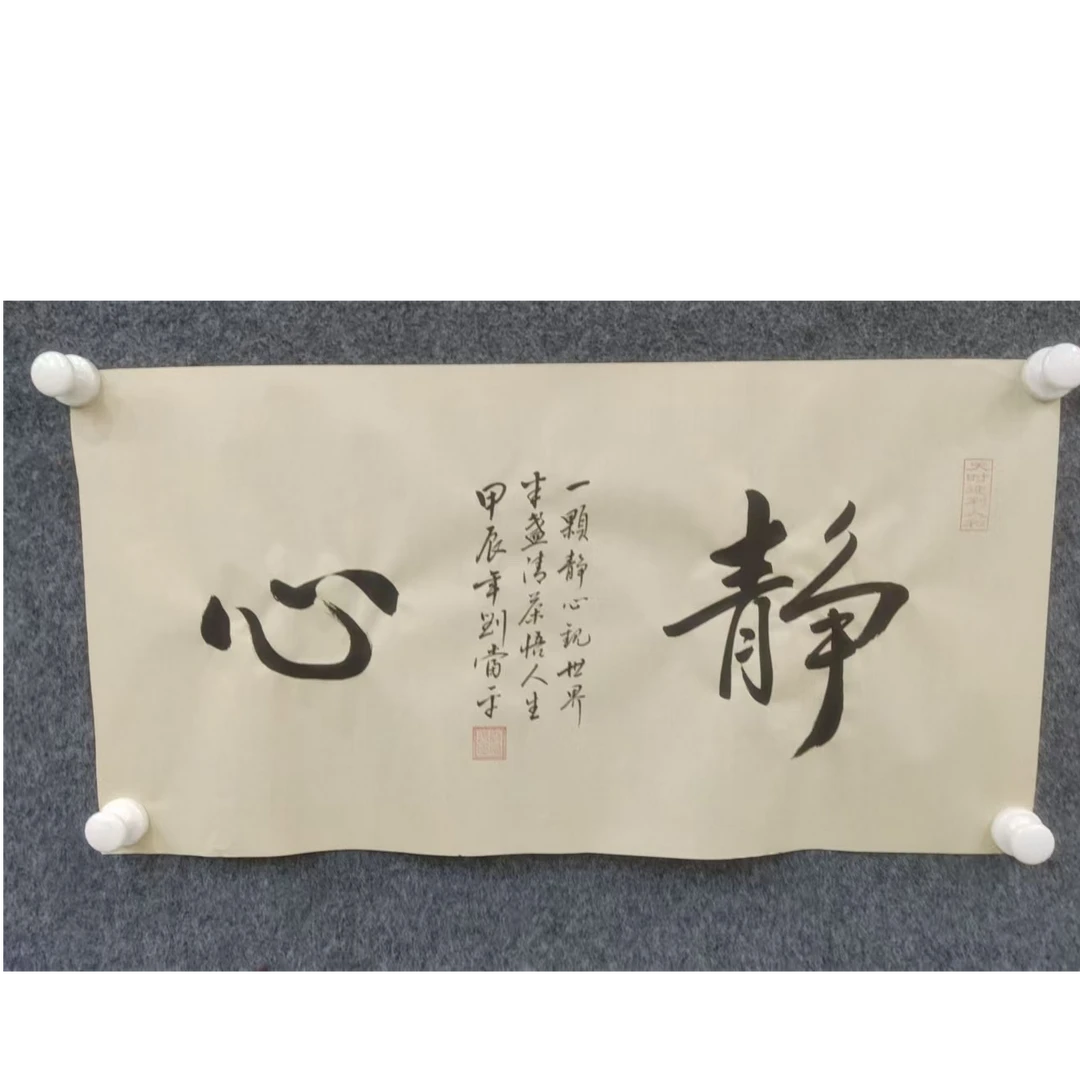 静
心
一颗静心观世界
半盏清茶悟人生
甲辰年刘当平